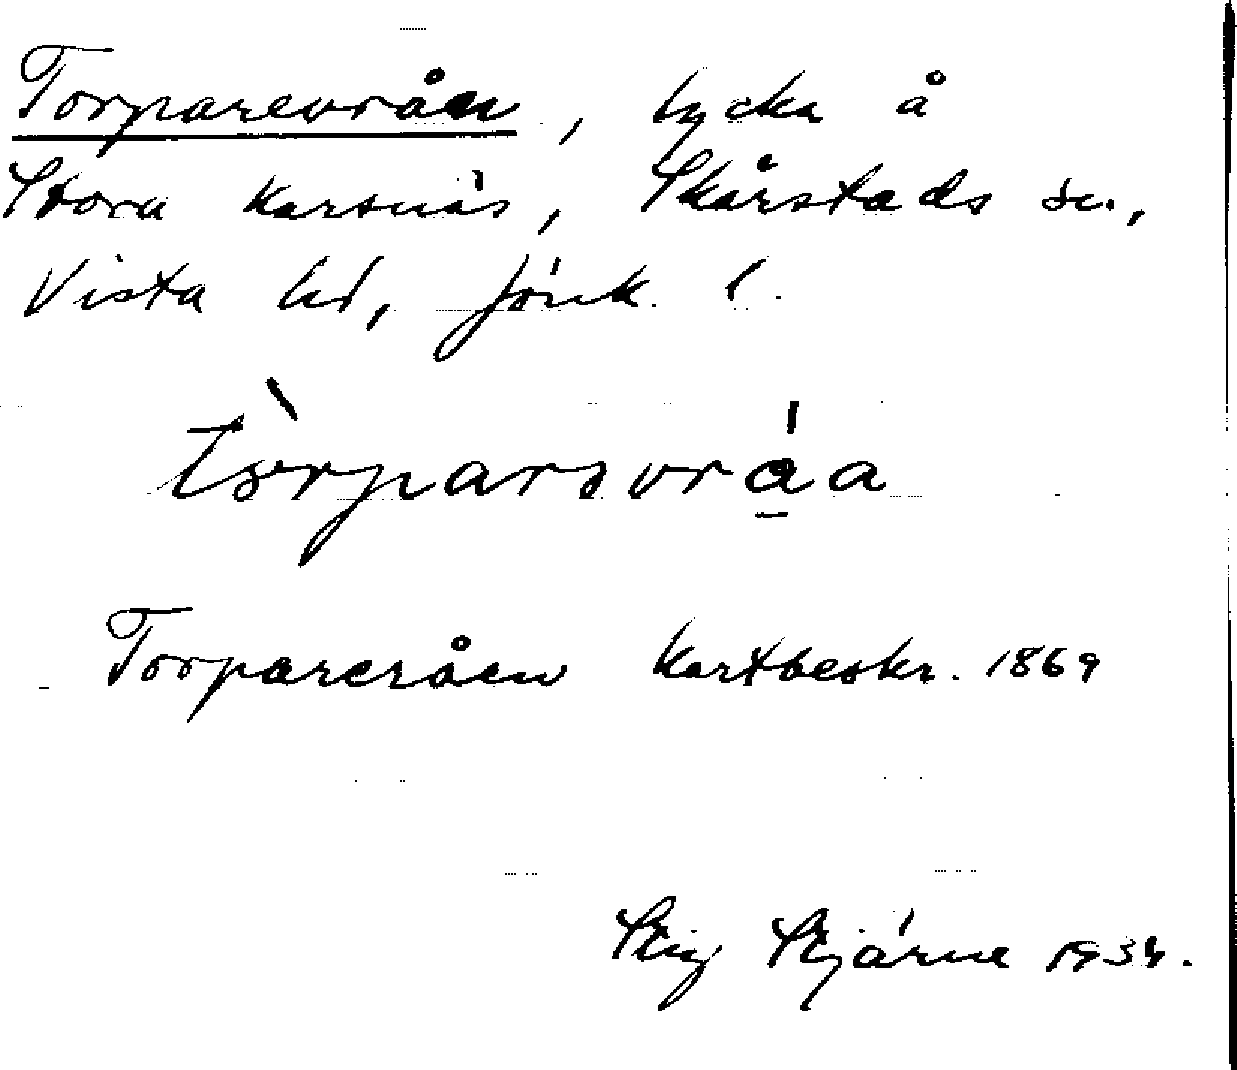 Torparevrån, lycka å
Stora Karsnäs, Skärstads sn.,
Vista hd, Jönk. l.
tòrparsvráa
Torpareråen Kartbeskr. 1869
Stig Stjärne 1934.